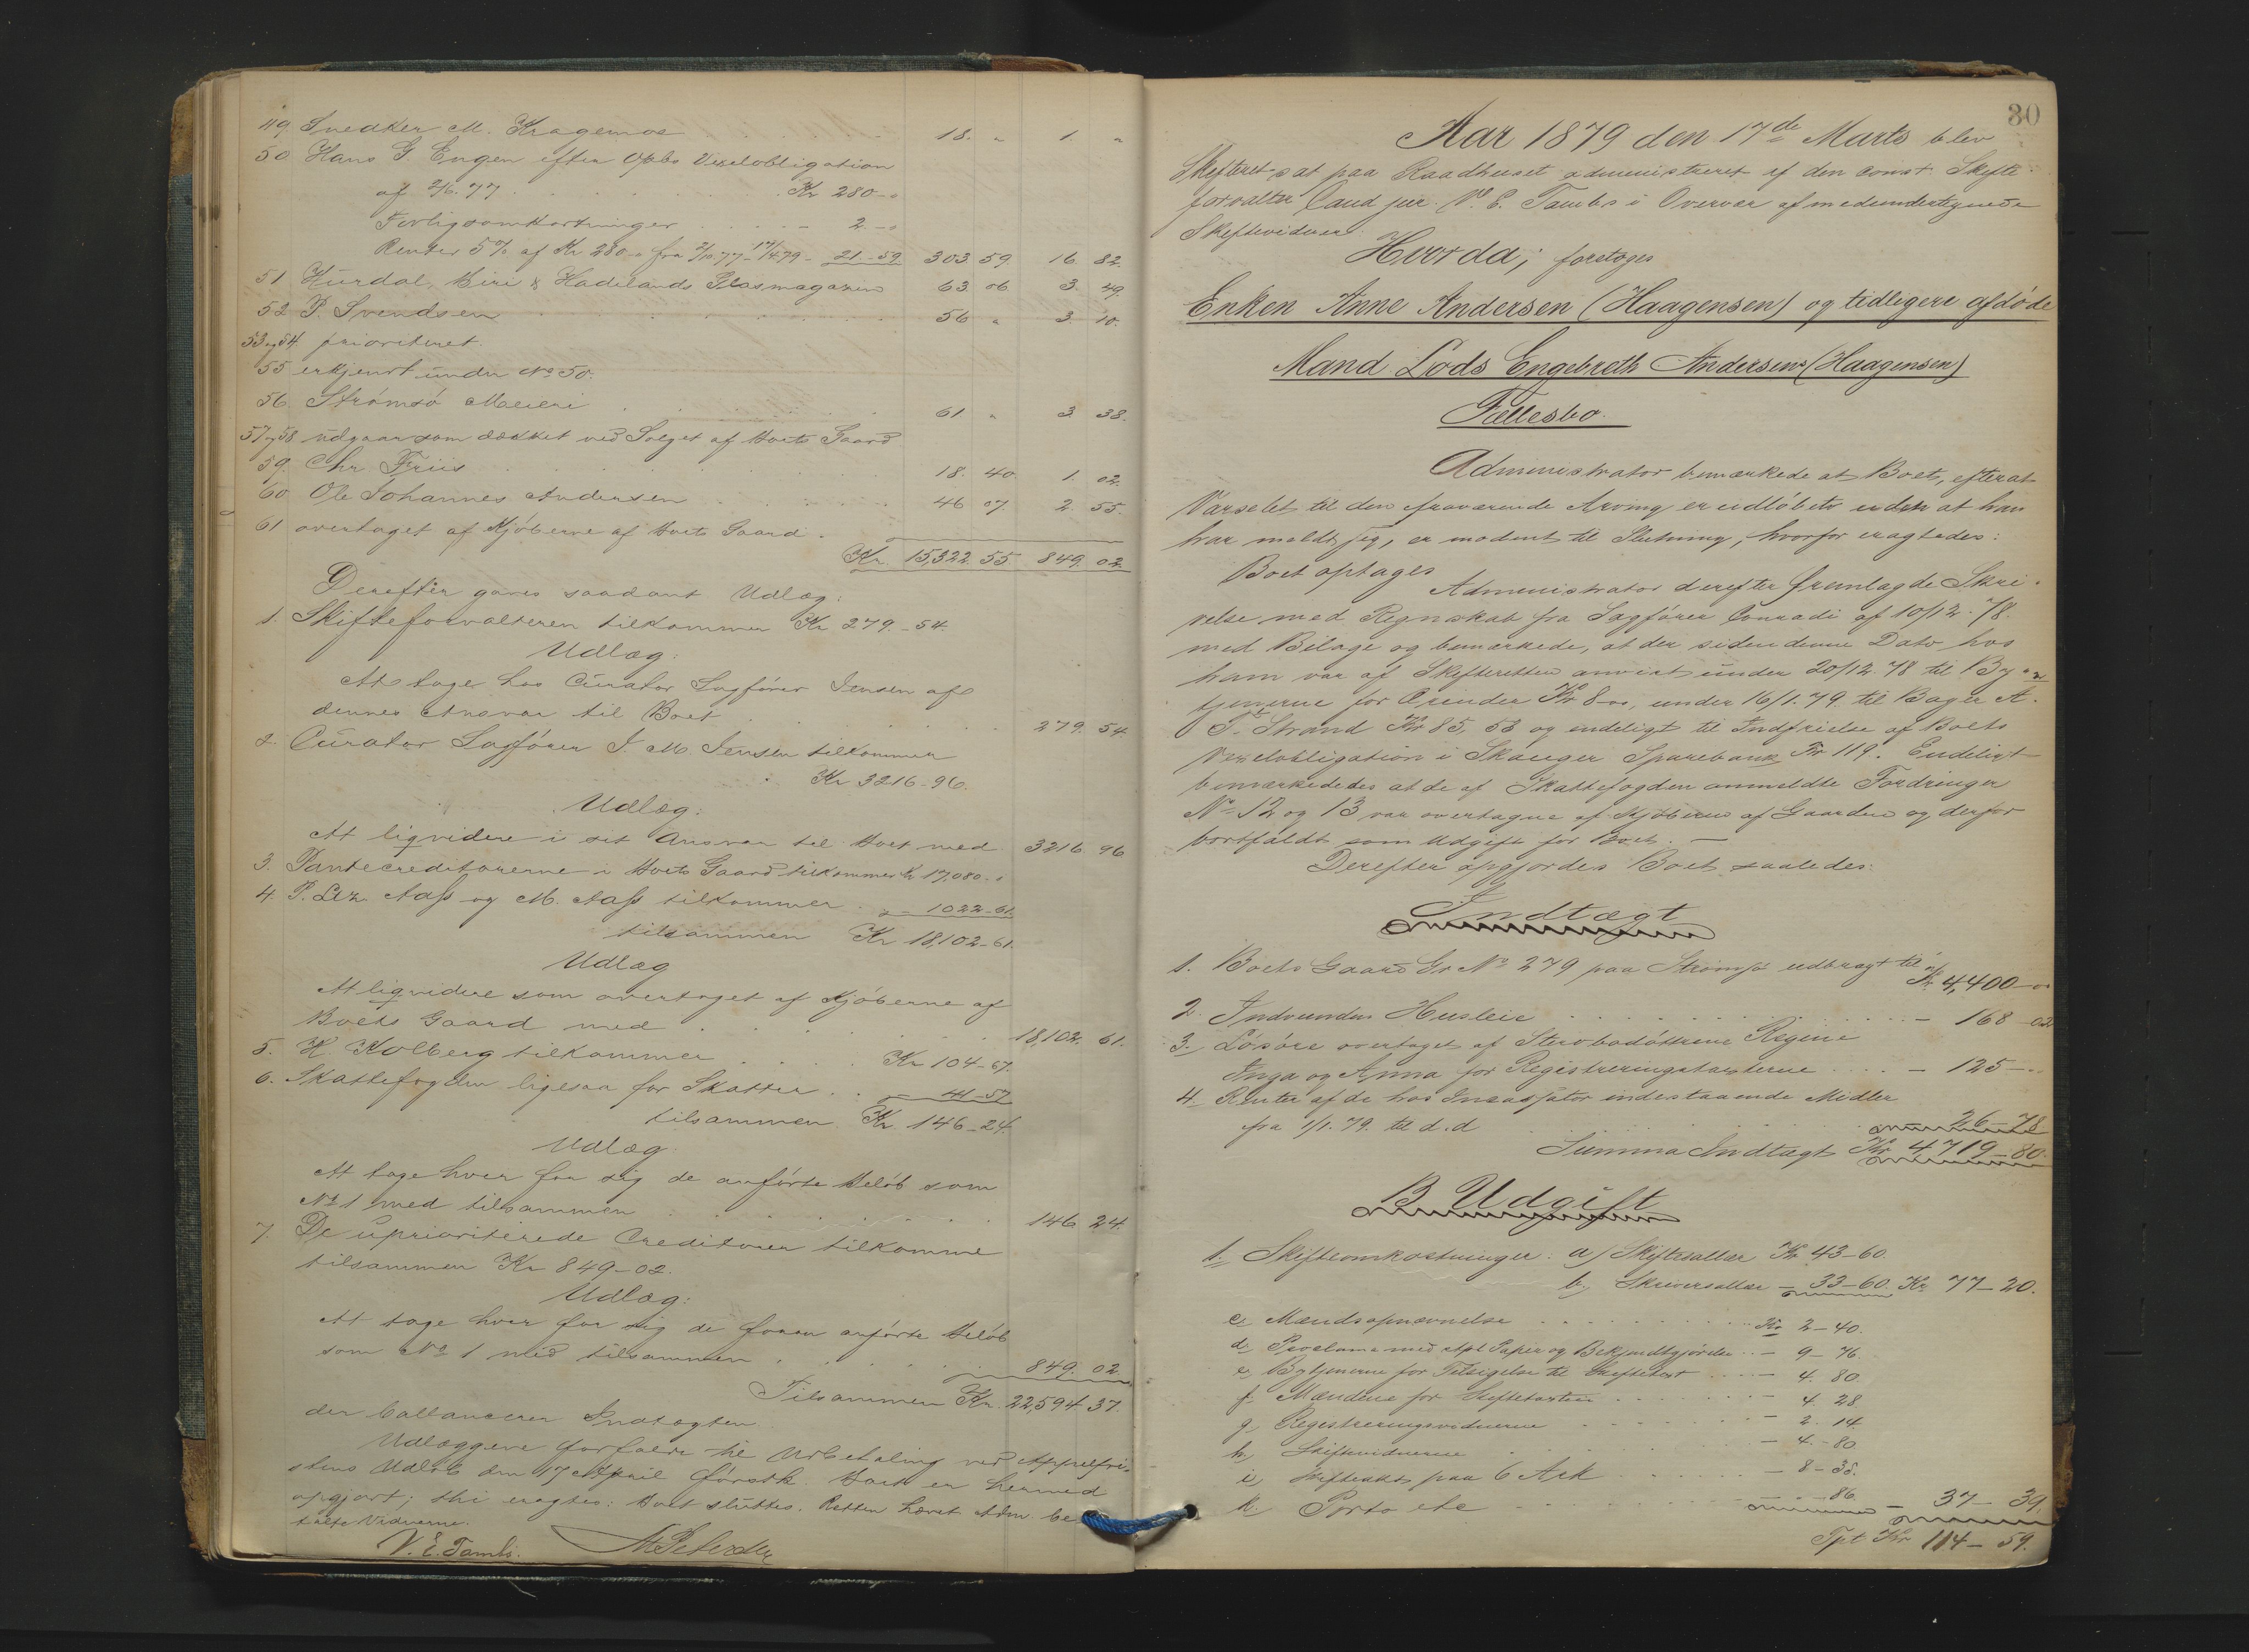 49 Snedker M. Kragemoe 18. " 1. "
50 Hans G. Engen efter Opbs Vexelobligation
af 2/6.77 Kr 280-"
Forligsomkostninger - 2-"
Renter 5% af Kr 280-" fra 2/10.77-17/4.79 - 21-59 303 59 16 82.
51 Hurdal, Biri & Hadelands Glasmagaxin 63. 06 3. 49.
52 P. Svendsen 56 " 3. 10.
53 og 54. prioriteret.
55 erkjendt under No 50.
56. Strømsø Meieri 61 " 3. 38.
57 og 58 udgaar som dækket ved Salget af Boets Gaard
59. Chr. Friis 18. 40. 1. 02.
60 Ole Johannes Andersen 46 07. 2. 55.
61 overtaget af Kjøberne af Boets Gaard.
Kr. 15,322. 55 849. 02.
Derefter gives saadant Udlæg:
1. Skifteforvalteren tilkommer Kr 279.-54.
Udlæg:
At tage hos Curator Sagfører Jensen af
dennes Ansvar til Boet 279. 54.
2. Curator Sagfører J. M. Jensen tilkommer
Kr 3216-96.
Udlæg:
At liqvidere i sit Ansvar til Boet med 3216 96
3. Pantecreditorerne i Boets Gaard tilkommer Kr 17,080.-"
4. P. Ltz. Aass og M. Aass tilkommer - 1022-61.
tilsammen Kr 18,102-61.
Udlæg
At liqvidere som overtaget af Kjøberne af
Boets Gaard med 18,102. 61.
5. H. Kolberg tilkommer Kr 104-67.
6. Skattefogden ligesaa for Skatter - 41-57
tilsammen Kr 146-24.
Udlæg
At tage hver for sig de anførte Beløb som
No 1 med tilsammen 146 24.
7. De uprioriterede Creditorer tilkomme
tilsammen Kr 849-02.
Udlæg:
At tage hver for sig de foran anførte Beløb
som No 1 med tilsammen 849. 02.
Tilsammen Kr. 22,594 37.
der ballancerer Indtægten.
Udlæggene forfalde til Udbetaling ved Appelfri-
stens Udløb den 17 April førstk. Boet er hermed
opgjort; thi eragtes: Boet sluttes. Retten hævet. Adm. be
talte Vidnerne.
V. E. Tambs. M Petersen
30
Aar 1879 den 17de Marts blev
Skifteret sat paa Raadhuset administreret af den const. Skifte-
forvalter Cand jur. V. E. Tambs i Overvær af medundertegnede
Skiftevidner.
Hvorda; foretoges
Enken Anne Andersen (Haagensen) og tidligere afdøde
Mand Lods Engebreth Andersens (Haagensen)
Fællesbo.
Administrator bemærkede at Boet, efterat
Varselet til den fraværende Arving er udløbet uden at han
har meldt sig, er modent til Slutning, hvorfor eragtedes:
Boet optages
Administrator derefter fremlagde Skri-
velse med Regnskab fra Sagfører Conradi af 10/12.78.
med Bilage og bemærkede, at der siden denne Dato hos
ham var af Skifteretten anvist under 20/12 78 til By-
tjenerne for Ærinder Kr 8-00, under 16/1.79. til Bager A.
T. Strand Kr 85, 58 og endeligt til Indfrielse af Boets
Vexelobligation i Skauger Sparebank Kr 119. Endeligt
bemærkededes at de af Skattefogden anmeldte Fordringer
No 12 og 13 var overtagne af Kjøberen af Gaarden og derfor
bortfaldt som Udgift for Boet. —
Derefter opgjordes Boet saaledes:
Indtægt
1. Boets Gaard Gr No 279 paa Strømsø udbragt til Kr 4,400-"
2. Indvunden Husleie - 168-02
3. Løsøre overtaget af Stervbodøttrene Regine
Inga og Anna for Registreringstaxterne - 125-"
4. Renter af de hos Incassator indestaaende Midler
fra 1/1.79. til d.d 26-78
Summa Indtægt Kr 4719-80.
B Udgift
1. Skifteomkostninger: a) Skiftesallær Kr 43-60.
b, Skriversallær - 33-60. Kr 77-20.
c, Mændsopnævnelse Kr 2-40.
d, Proclama med stpl Papir og Bekjendtgjørelse - 9-76
e, Bytjenerne for Tilsigelse til Skiftetaxt - 4. 80.
f. Mændene for Skiftetaxten - 4. 28
g, Registreringsvidnerne - 2. 14.
h, Skiftevidnerne - 4.-80
i, Skifteakt paa 6 Ark - 8-35.
k. Porto etc - -86. - 37-39.
Tpt Kr 114-59.